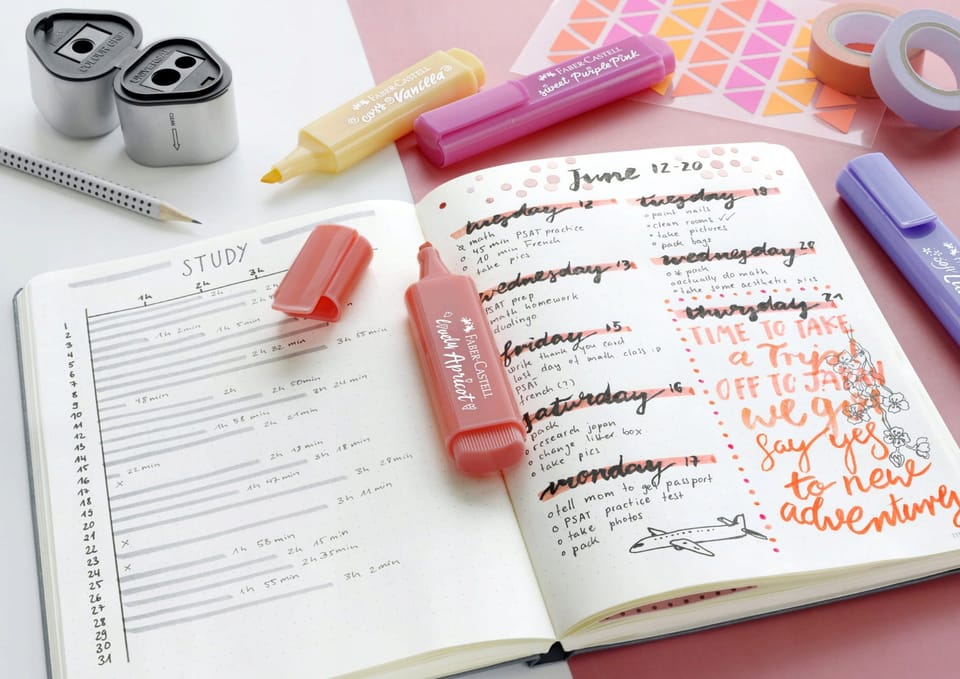 COLOUR GRIP
UNIVERSAL
CLEAN
FABER-CASTELL
cosy Vanilla
FABER-CASTELL
sweet Purple Pink
FABER-CASTELL
lovely Apricot
STUDY
1h 2h 3h
1
2
3
4
5
6
7
8
9
10
11
12
13
14
15
16
17
18
19
20
21
22
23
24
25
26
27
28
29
30
31
2h
1h 2min
1h 5min
3h 55min
2h 32 min
48min
2h
2h 50min
3h 24 min
1h 58 min
21min
22min
2h 13 min
3h 18 min
x
1h 47 min
3h 28min
3h 11 min
x
1h 58 min
2h 15 min
x
2h 35min
1h 55 min
3h 2 min
June 12-20
tuesday 12
math
45 min PSAT practice
10 min French
take pics
wednesday 13
PSAT prep
math homework
duolingo
friday 15
write thank you card
last day of math class :D
PSAT
french (?)
saturday 16
pack
research japan
change litter box
take pics
monday 17
tell mom to get passport
PSAT practice test
take photos
pack
tuesday 19
paint nails
clean rooms ✓✓
take pictures
pack bags
wednesday 20
* pack
actually do math
take some aesthetic pics
thursday 21
TIME TO TAKE
a Trip
OFF TO JAPAN
we got
say yes
to new
adventures